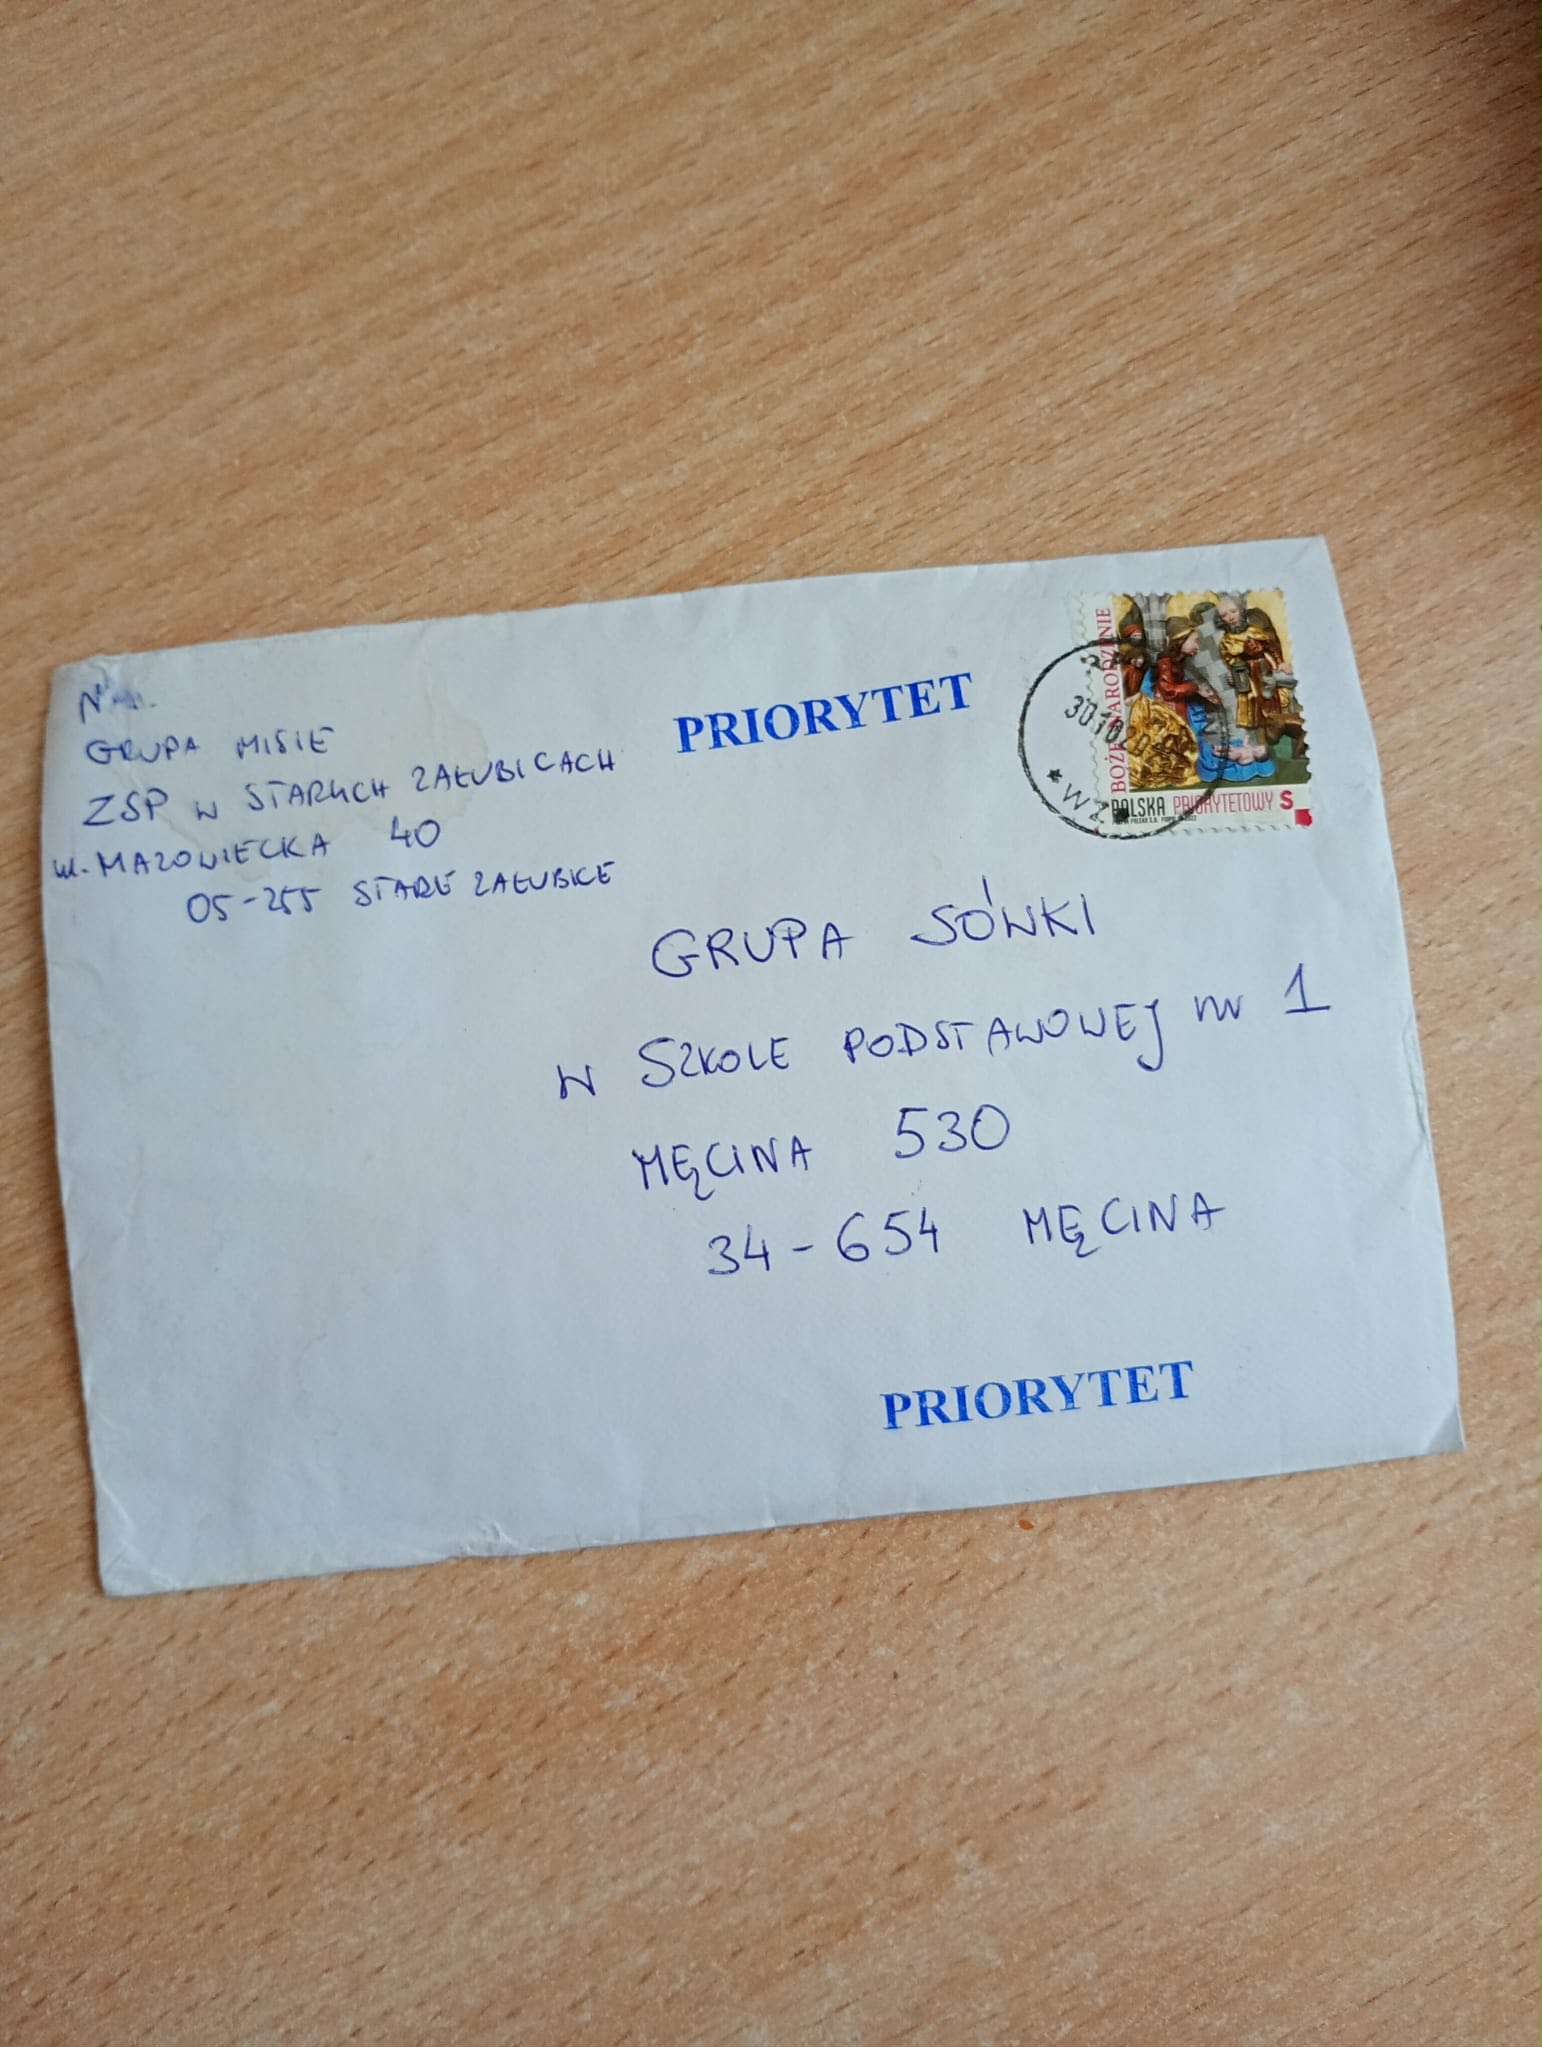 GRUPA MISIE
ZSP w STARYCH ZAŁUBICACH
ul. MAZOWIECKA 40
05-255 STARE ZAŁUBICE
PRIORYTET
BOŻE NARODZENIE
30.10
POLSKA PRIORYTETOWY S
GRUPA SÓWKI
W SZKOLE PODSTAWOWEJ nr 1
MĘCINA 530
34-654 MĘCINA
PRIORYTET